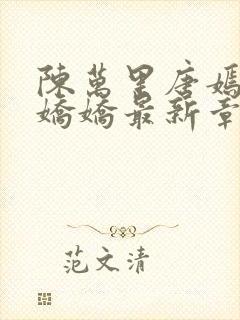 陳萬里唐嫣
嬌嬌最新章
范文清